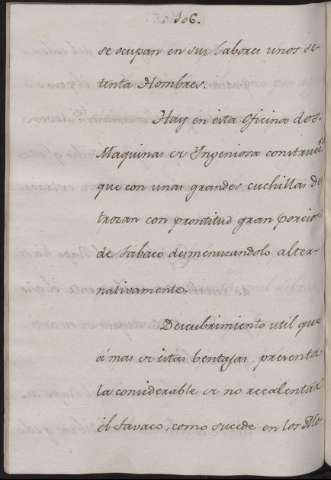 106.
se ocupan en sus labores unos se-
tenta Hombres.
Hay en esta Oficina dos
Maquinas de Ingeniosa construcc.n
que con unas grandes cuchillas des
trozan con prontitud gran porcion
de Tabaco desmenuzandolo alter-
nativamente.
Descubrimiento util que
á mas de estas bentajas, presenta
la considerable de no recalentar
él Tavaco, como sucede en los